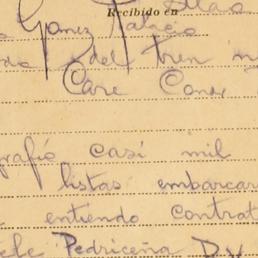 Recibido en
Gomez Palacio
del tren
Care Conr
grafió casi mil
listas embarcar
entiendo contrat
Pedriceña D.V.